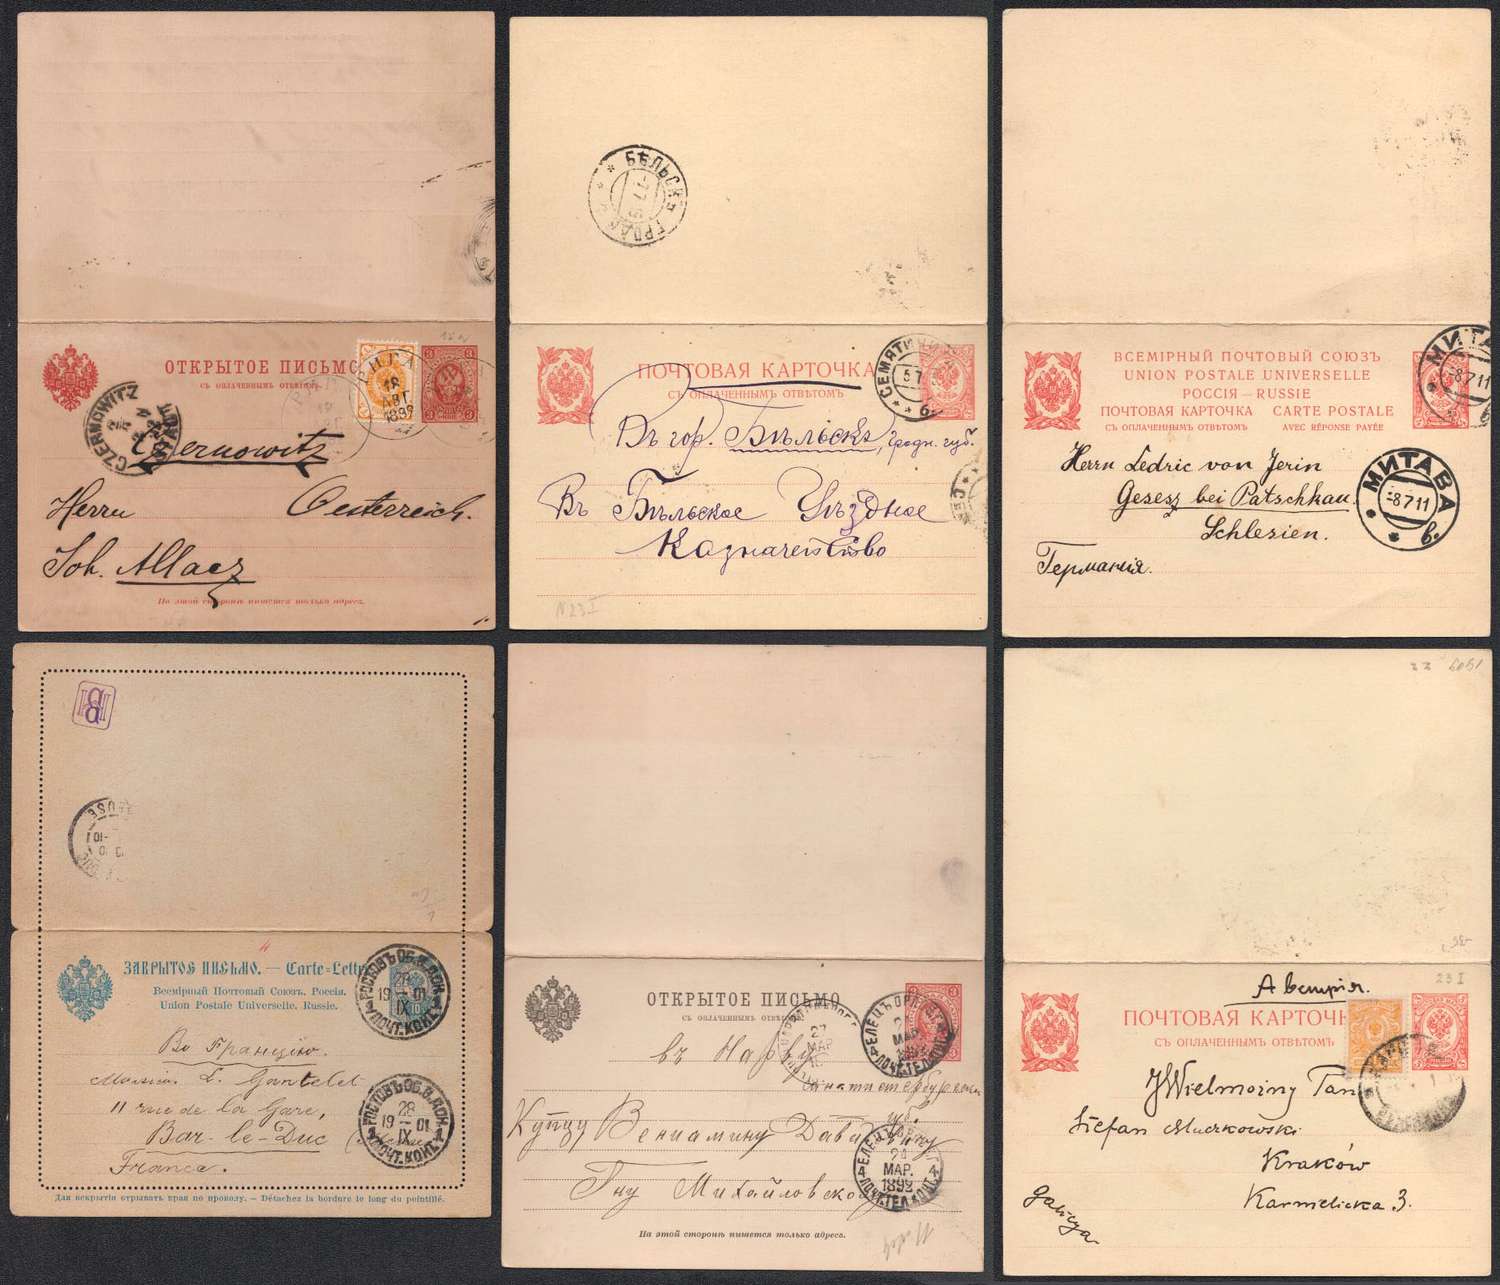 ОТКРЫТОЕ ПИСЬМО
СЪ ОПЛАЧЕННЫМЪ ОТВѢТОМЪ.
РИГА
18
АВГ.
1892
3
3
CZERNOWITZ
Czernowitz
Herrn
Oesterreich.
Joh. Allacz
На этой сторонѣ пишется только адресъ.
БѢЛЬСКЪ
ГРОДН.
ПОЧТОВАЯ КАРТОЧКА
СЪ ОПЛАЧЕННЫМЪ ОТВѢТОМЪ.
СЕМЯТИЧИ
5 7
б.
Въ гор. Бѣльскъ, гродн. губ.
Въ Бѣльское Уѣздное
Казначейство
N 23 I
ВСЕМІРНЫЙ ПОЧТОВЫЙ СОЮЗЪ
UNION POSTALE UNIVERSELLE
РОССІЯ – RUSSIE
ПОЧТОВАЯ КАРТОЧКА CARTE POSTALE
СЪ ОПЛАЧЕННЫМЪ ОТВѢТОМЪ AVEC RÉPONSE PAYÉE
МИТАВА
-8 7 11
в.
Herrn Ledric von Jerin
Gesesz bei Patschkau.
Schlesien.
Германія.
МИТАВА
-8 7 11
в.
ЗАКРЫТОЕ ПИСЬМО. — Carte=Lettre
Всемірный Почтовый Союзъ. Россія.
Union Postale Universelle. Russie.
РОСТОВЪ ОБ. В. ДОН.
28
19 — 01
IX
ПОЧТ. КОНТ.
10
Во Францію.
L. Gantelet
11 rue de la Gare,
Bar-le-Duc
France.
РОСТОВЪ ОБ. В. ДОН.
28
19 — 01
IX
ПОЧТ. КОНТ.
Для вскрытія отрывать края по проколу. — Détachez la bordure le long du pointillé.
ОТКРЫТОЕ ПИСЬМО
СЪ ОПЛАЧЕННЫМЪ
27
МАР
ЕЛЕЦЪ ОРЛ.
МАР.
ПОЧТ.ТЕЛ.КОНТ.
3
въ Нарву
Купцу Веніамину
губ.
Гну Михайловскому
ЕЛЕЦЪ
24
МАР.
1892
ПОЧТ.ТЕЛ.КОНТ.
4
На этой сторонѣ пишется только адресъ.
1909
22
23 I
Австрія.
ПОЧТОВАЯ КАРТОЧКА
СЪ ОПЛАЧЕННЫМЪ ОТВѢТОМЪ
JWielmożny Pan
Stefan Muczkowski
Kraków
Karmelicka 3.
Galicya